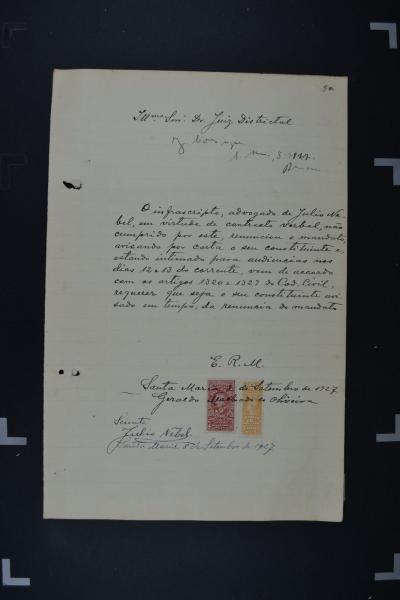 Illmo Snr. Dr. Juiz Districtal
O infrascripto, advogado de Julio Ne-
bel, em virtude de contracto verbal, não
cumprido por este, renunciou o mandato,
avisando por carta o seu constituinte e,
estando intimado para audiencias nos
dias 12 e 13 do corrente, vem de accordo
com os artigos 1320 e 1327 do Cod. Civil,
requerer que seja o seu constituinte avi-
sado em tempo, da renuncia do mandato
E. R. M.
Santa Maria, de Setembro de 1927
Geraldo Machado de Oliveira
Sciente
Julio Nebel.
Santa Maria 8 de Setembro de 1927